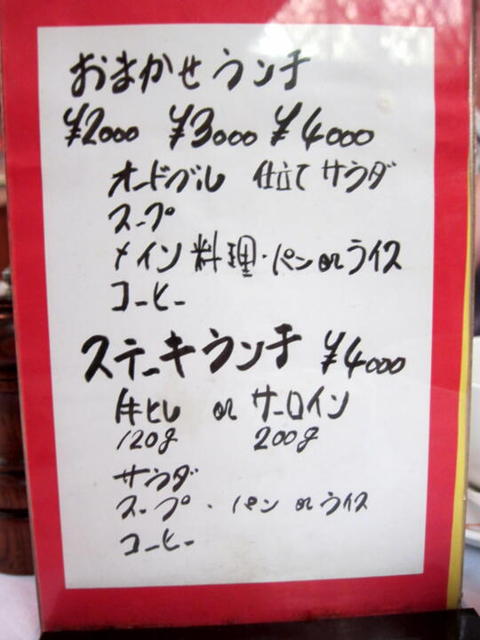 おまかせランチ
¥2000 ¥3000 ¥4000
オードブル 仕立て サラダ
スープ
メイン料理・パン or ライス
コーヒー
ステーキランチ ¥4000
牛ヒレ or サーロイン
120g 200g
サラダ
スープ・パン or ライス
コーヒー